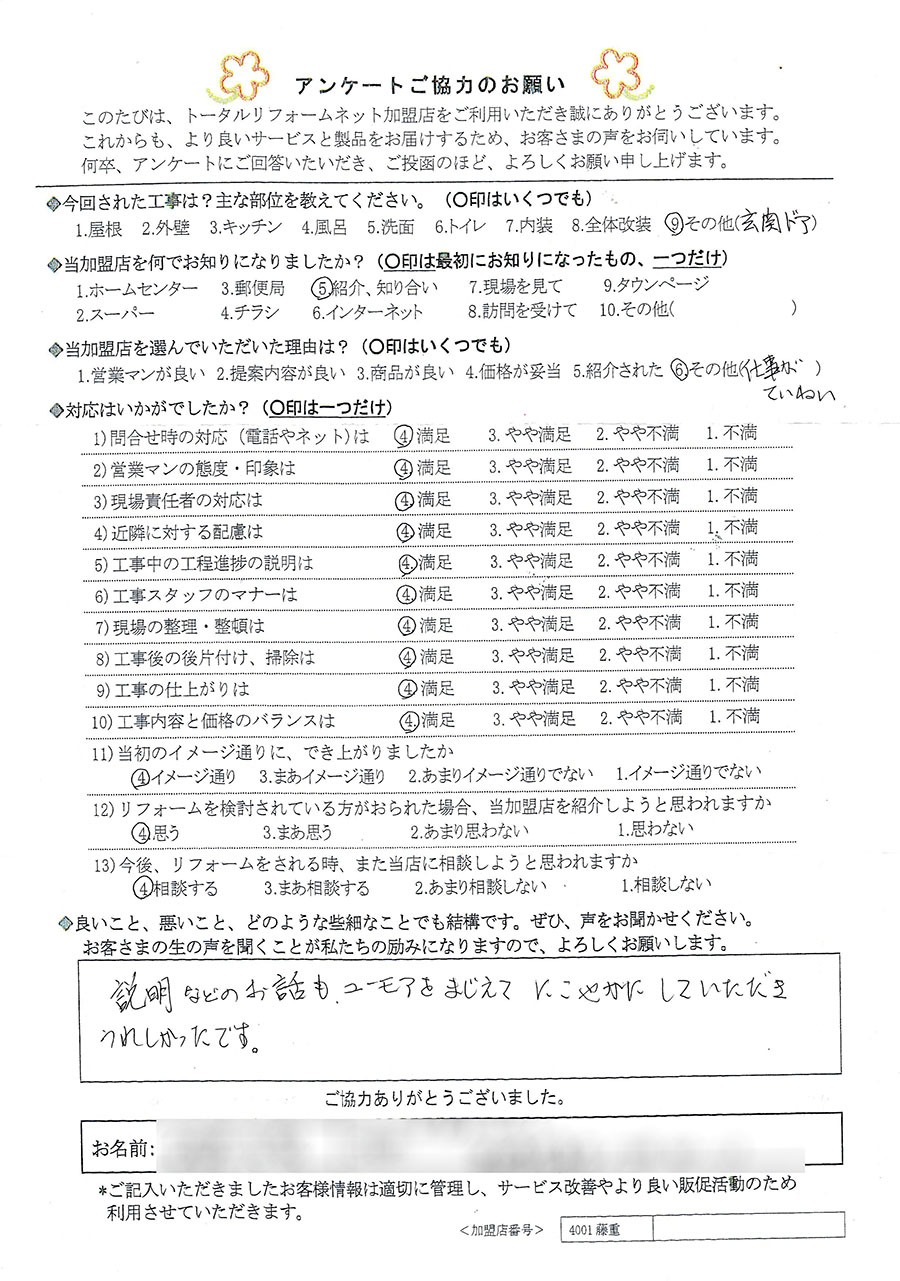 アンケートご協力のお願い
このたびは、トータルリフォームネット加盟店をご利用いただき誠にありがとうございます。
これからも、より良いサービスと製品をお届けするため、お客さまの声をお伺いしています。
何卒、アンケートにご回答いたいだき、ご投函のほど、よろしくお願い申し上げます。
◆今回された工事は？主な部位を教えてください。（〇印はいくつでも）
1.屋根 2.外壁 3.キッチン 4.風呂 5.洗面 6.トイレ 7.内装 8.全体改装 ⑨その他(玄関ドア)
◆当加盟店を何でお知りになりましたか？（〇印は最初にお知りになったもの、一つだけ）
1.ホームセンター 3.郵便局 ⑤紹介、知り合い 7.現場を見て 9.タウンページ
2.スーパー 4.チラシ 6.インターネット 8.訪問を受けて 10.その他( )
◆当加盟店を選んでいただいた理由は？（〇印はいくつでも）
1.営業マンが良い 2.提案内容が良い 3.商品が良い 4.価格が妥当 5.紹介された ⑥その他(仕事が )
ていねい
◆対応はいかがでしたか？（〇印は一つだけ）
1)問合せ時の対応（電話やネット)は ④満足 3.やや満足 2.やや不満 1.不満
2)営業マンの態度・印象は ④満足 3.やや満足 2.やや不満 1.不満
3)現場責任者の対応は ④満足 3.やや満足 2.やや不満 1.不満
4)近隣に対する配慮は ④満足 3.やや満足 2.やや不満 1.不満
5)工事中の工程進捗の説明は ④満足 3.やや満足 2.やや不満 1.不満
6)工事スタッフのマナーは ④満足 3.やや満足 2.やや不満 1.不満
7)現場の整理・整頓は ④満足 3.やや満足 2.やや不満 1.不満
8)工事後の後片付け、掃除は ④満足 3.やや満足 2.やや不満 1.不満
9)工事の仕上がりは ④満足 3.やや満足 2.やや不満 1.不満
10)工事内容と価格のバランスは ④満足 3.やや満足 2.やや不満 1.不満
11)当初のイメージ通りに、でき上がりましたか
④イメージ通り 3.まあイメージ通り 2.あまりイメージ通りでない 1.イメージ通りでない
12)リフォームを検討されている方がおられた場合、当加盟店を紹介しようと思われますか
④思う 3.まあ思う 2.あまり思わない 1.思わない
13)今後、リフォームをされる時、また当店に相談しようと思われますか
④相談する 3.まあ相談する 2.あまり相談しない 1.相談しない
◆良いこと、悪いこと、どのような些細なことでも結構です。ぜひ、声をお聞かせください。
お客さまの生の声を聞くことが私たちの励みになりますので、よろしくお願いします。
説明などのお話も、ユーモアをまじえて にこやかに していただき
うれしかったです。
ご協力ありがとうございました。
お名前:
*ご記入いただきましたお客様情報は適切に管理し、サービス改善やより良い販促活動のため
利用させていただきます。
＜加盟店番号＞ 4001 藤重